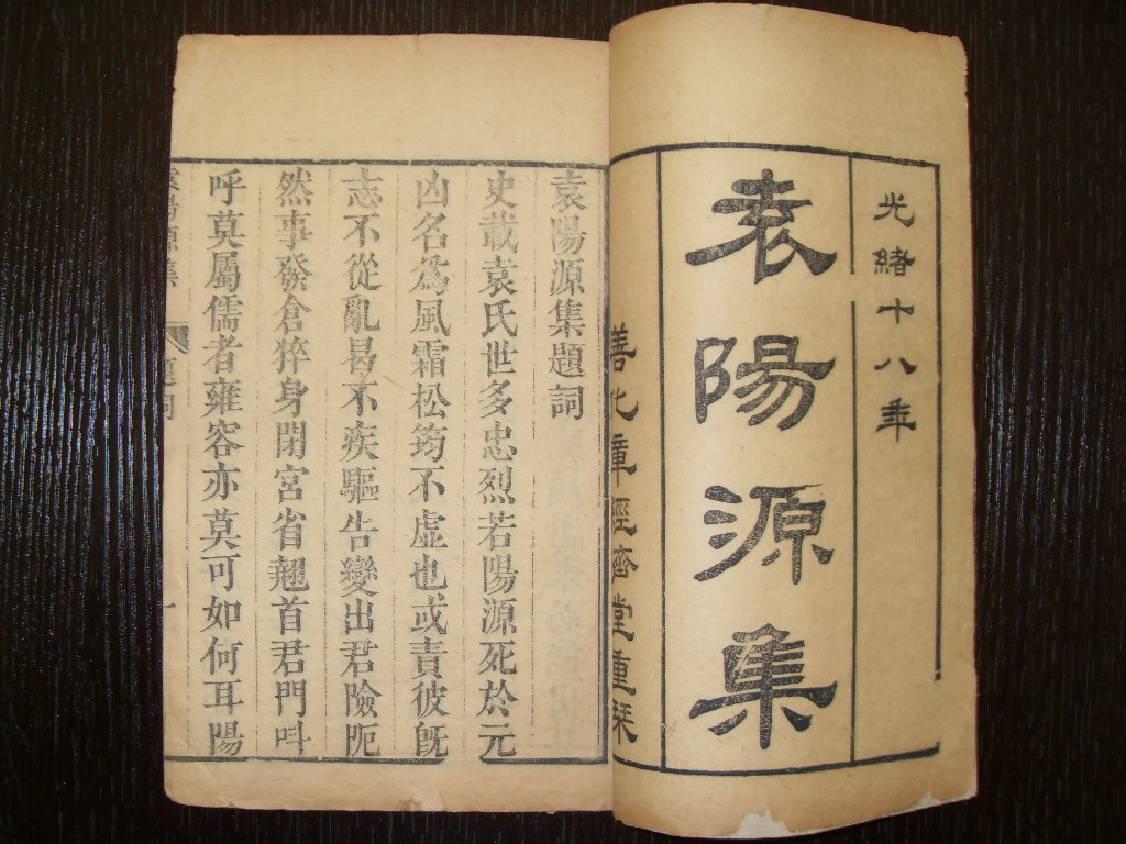 光緒十八年
袁陽源集
善化章經濟堂重栞
袁陽源集題詞
史載袁氏世多忠烈若陽源死於元
凶名爲風霜松筠不虛也或責彼旣
志不從亂曷不疾驅告變出君險阨
然事發倉猝身閉宮省翹首君門呌
呼莫屬儒者雍容亦莫可如何耳陽
袁陽源集 題詞 一